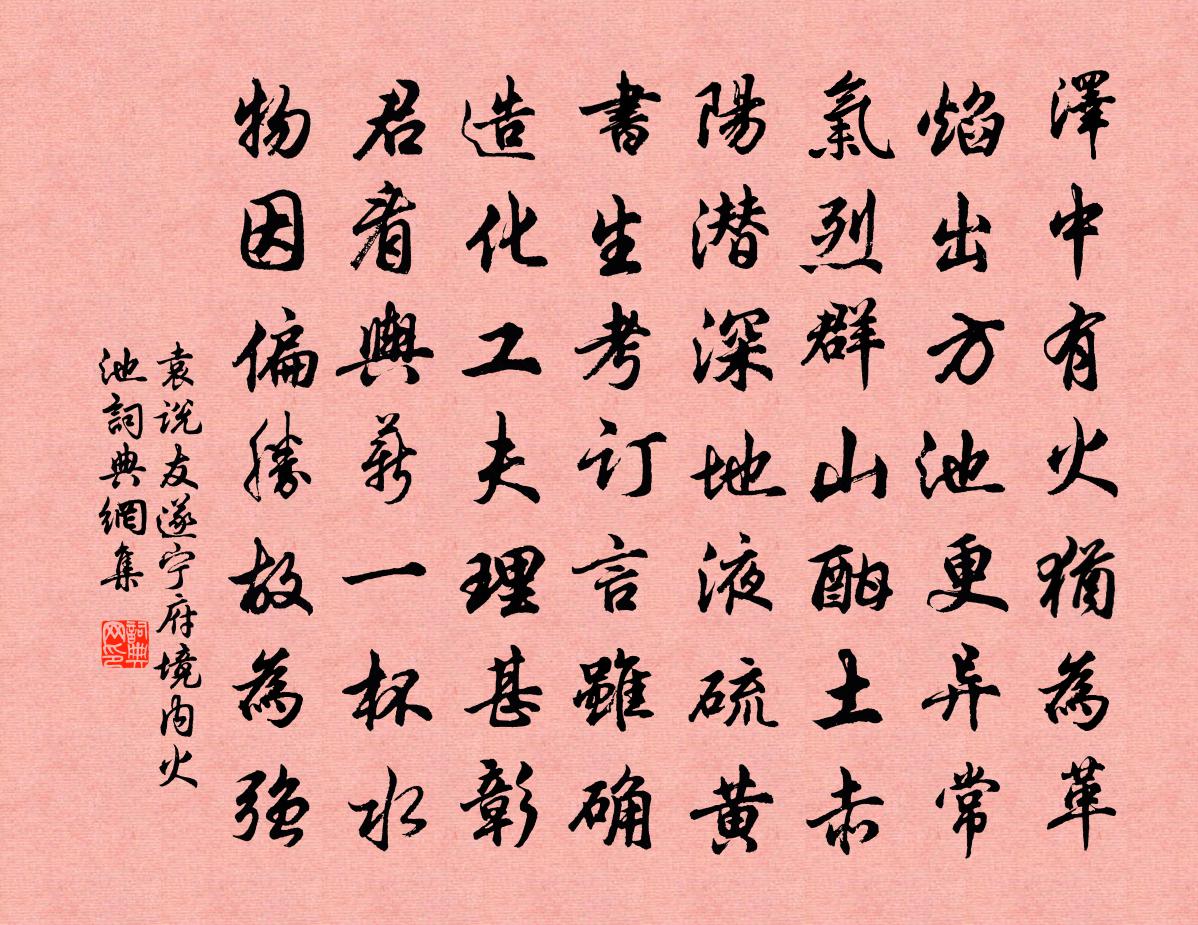 澤中有火猶為革
焰出方池更异常
氣烈群山酣土赤
陽潛深地液硫黃
書生考訂言雖确
造化工夫理甚彰
君看輿薪一杯水
物因偏勝故為強
袁说友遂宁府境内火
池詞典網集
詞典
网印